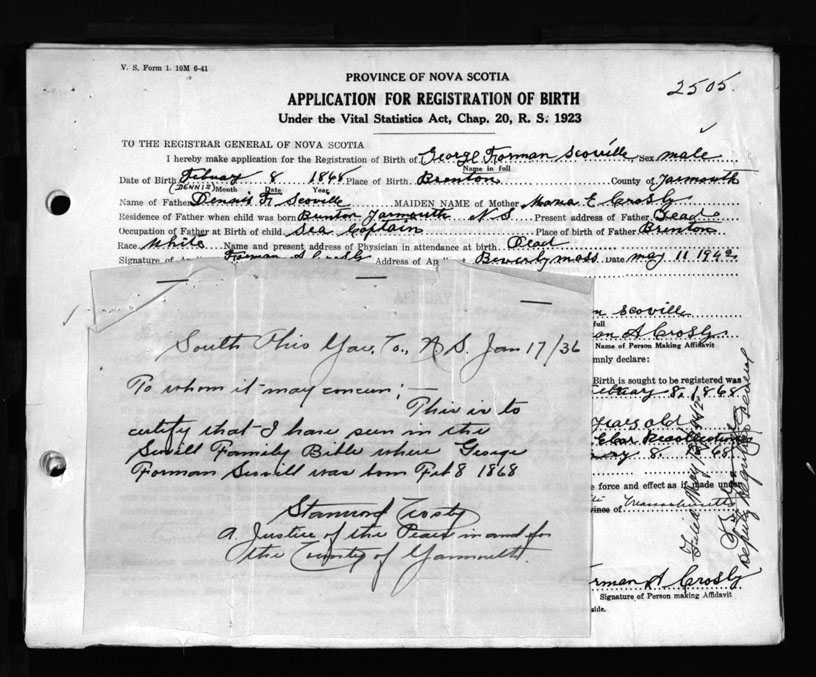 V. S. Form 1. 10M 6-41
2505.
PROVINCE OF NOVA SCOTIA
APPLICATION FOR REGISTRATION OF BIRTH
Under the Vital Statistics Act, Chap. 20, R. S. 1923
TO THE REGISTRAR GENERAL OF NOVA SCOTIA
I hereby make application for the Registration of Birth of George Forman Scoville Sex male
Name in full
Date of Birth Febuary 8 1868 Place of Birth Brenton County of Yarmouth
(DENNIS) Month Date Year
Name of Father Dennis H. Scoville MAIDEN NAME of Mother Maria E. Crosby
Residence of Father when child was born Brenton Yarmouth N S Present address of Father Dead
Occupation of Father at Birth of child Sea Captain Place of birth of Father Brenton
Race White Name and present address of Physician in attendance at birth Dead
Signature of Forman A Crosby Address of Beverly mass Date may 11 1942
South Ohio Yar. Co., N S. Jan 17/36
To whom it may concern; —
This is to
certify that I have seen in the
Scovill Family Bible where George
Forman Scovill was born Feb 8 1868
Crosby
A Justice of the Peace in and for
the County of Yarmouth.
Scoville
full
A Crosby
Name of Person Making Affidavit
mnly declare:
Birth is sought to be registered was
8, 1868
years old
Clear Recollection
8. 1868
e force and effect as if made under
vince of Massachusetts
Forman A Crosby
Signature of Person making Affidavit
side.
Filed May
Deputy Registrar General